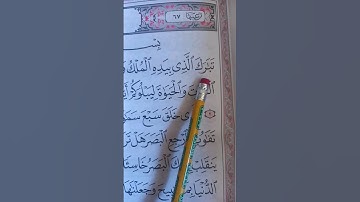 ٦٧
بِسْ
تَبَٰرَكَ ٱلَّذِى بِيَدِهِ ٱلْمُلْكُ وَ
وَٱلْحَيَوٰةَ لِيَبْلُوَكُمْ أَ
خَلَقَ سَبْعَ سَمَ
تَفَٰوُ ٱرْجِعِ ٱلْبَصَرَ هَلْ تَرَ
يَنقَلِبْ ٱلْبَصَرُ خَاسِئًا
ٱلدُّنْيَا بِمَ بِيحَ وَجَعَلْنَٰهَا